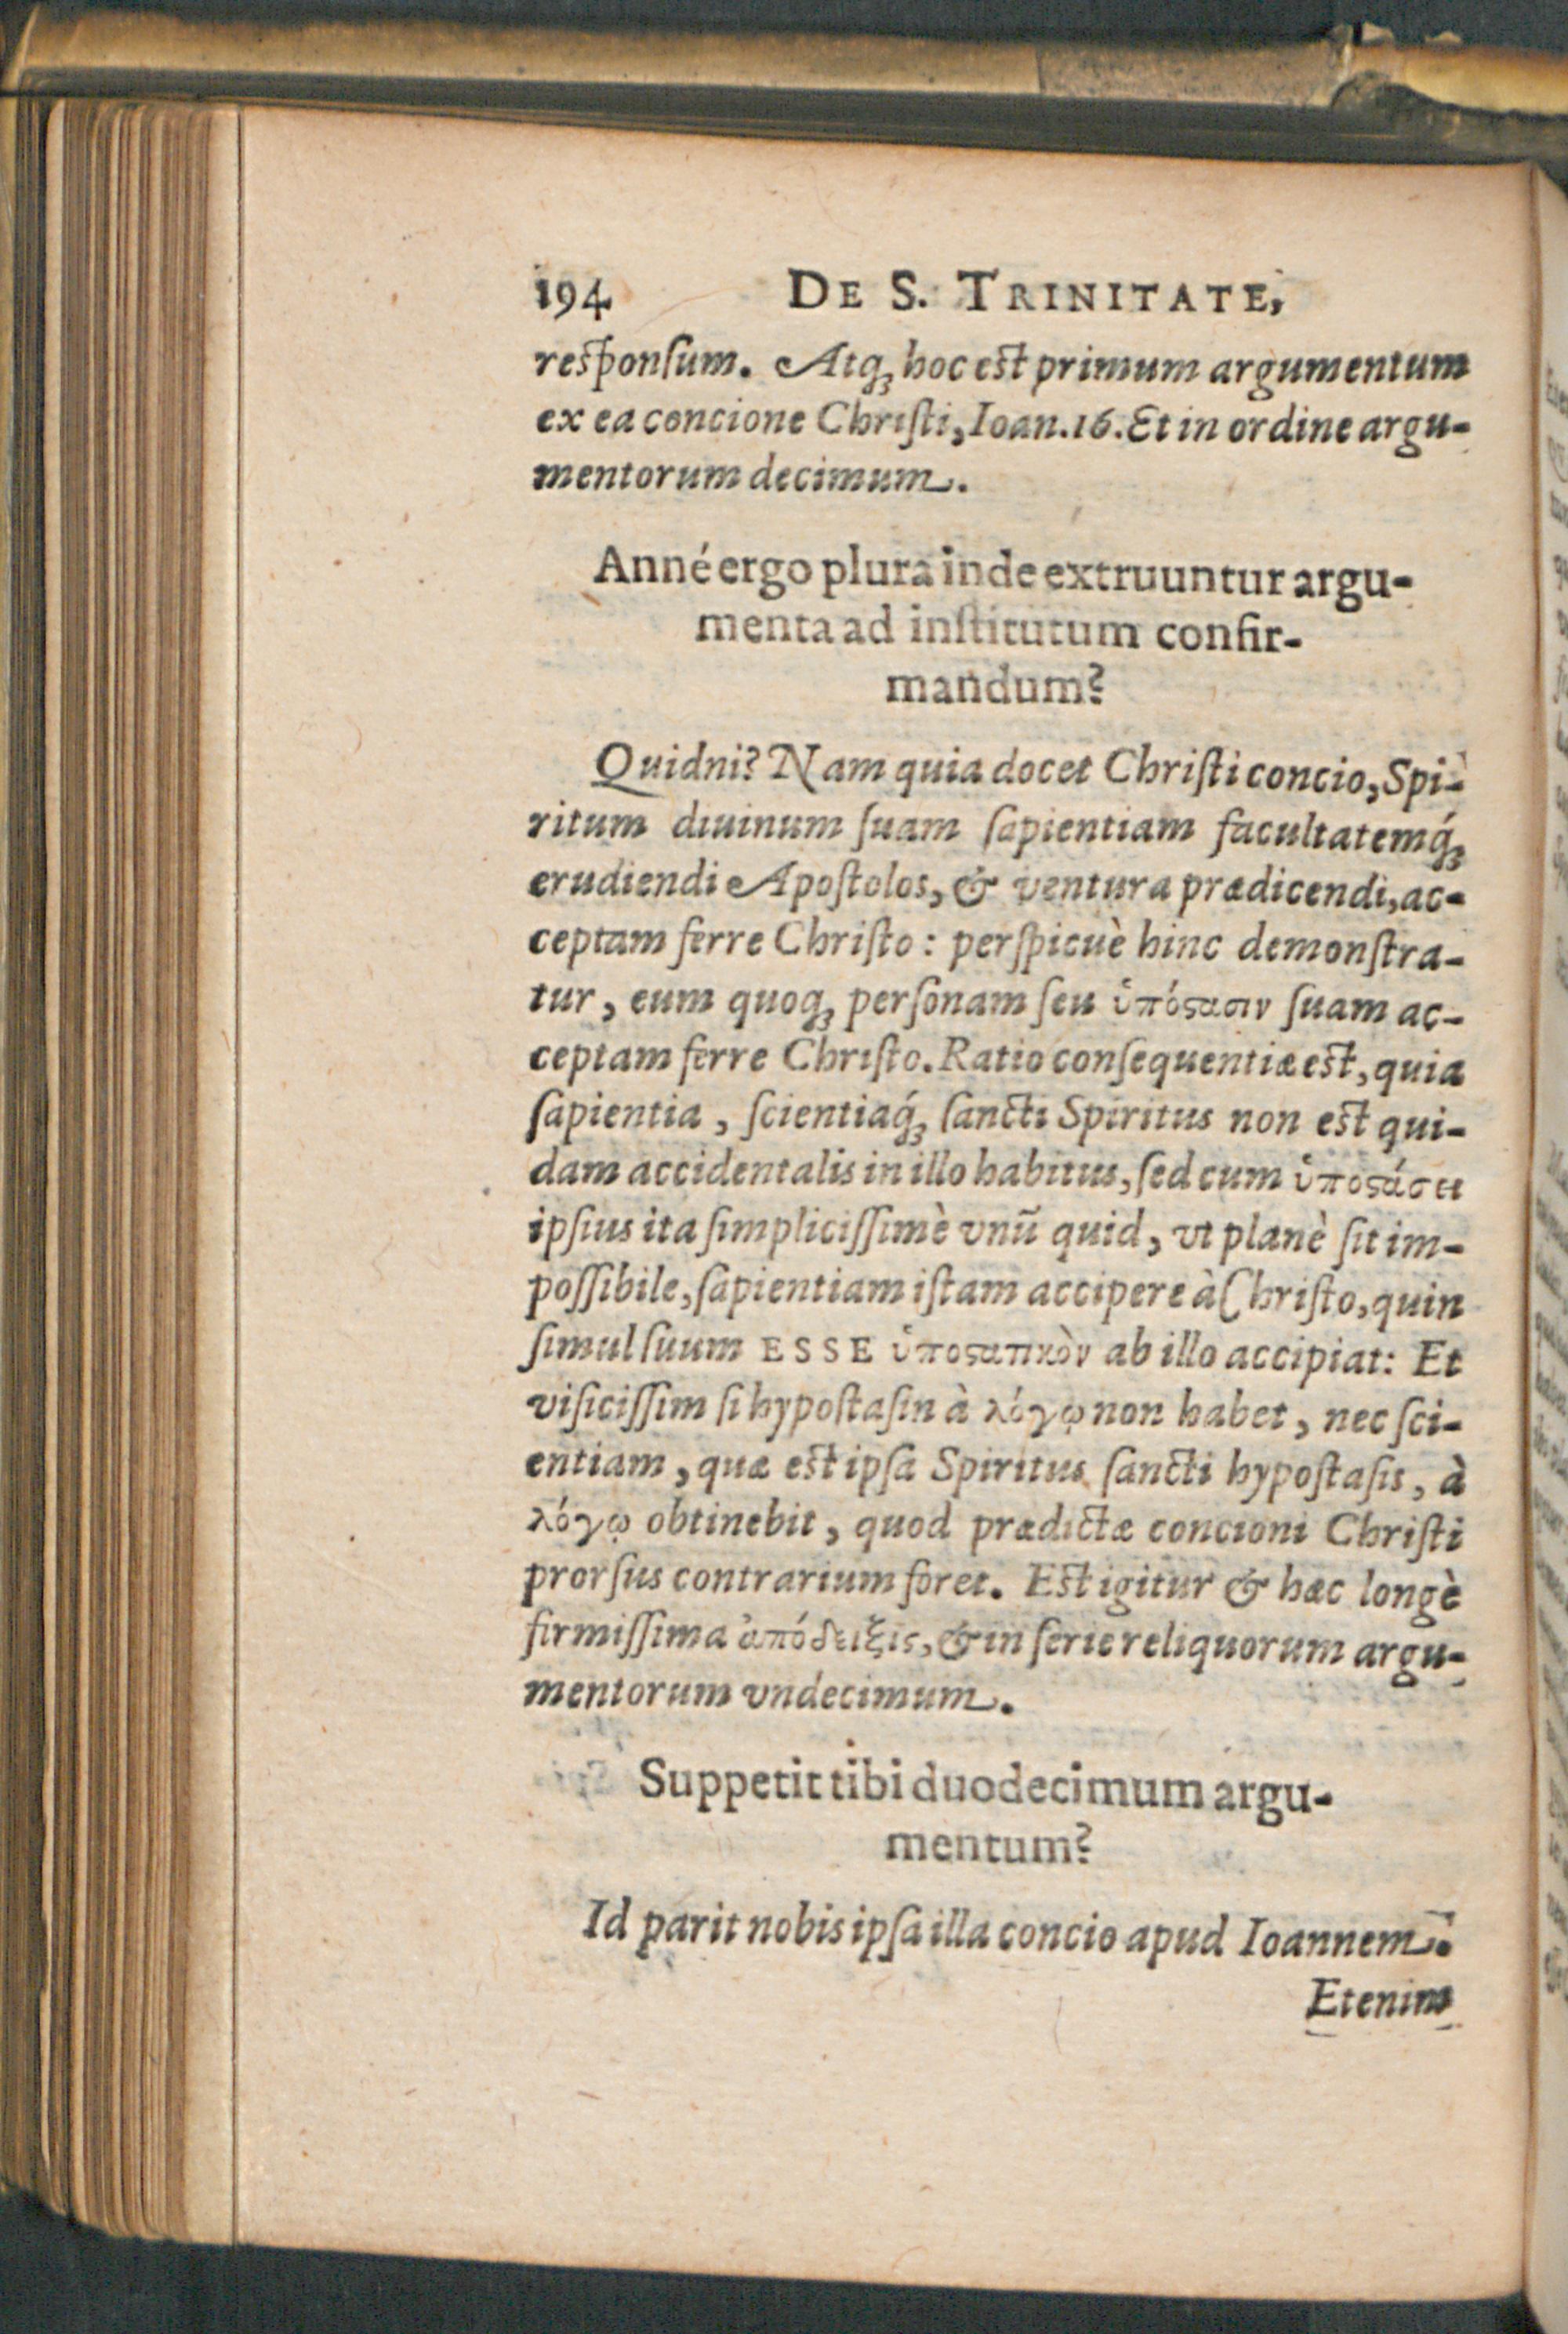 194 DE S. TRINITATE,
responſum. Atq; hoc est primum argumentum
ex ea concione Chriſti, Ioan.16. Et in ordine argu-
mentorum decimum.
Anné ergo plura inde extruuntur argu-
menta ad inſtitutum confir-
mandum?
Quidni? Nam quia docet Chriſti concio, Spi-
ritum diuinum ſuam ſapientiam facultatemq́;
erudiendi Apoſtolos, & ventura prædicendi, ac-
ceptam ferre Chriſto: perſpicuè hinc demonſtra-
tur, eum quoq; perſonam ſeu ὑπόϛασιν ſuam ac-
ceptam ferre Chriſto. Ratio conſequentiæ est, quia
ſapientia, ſcientiaq́; ſancti Spiritus non est qui-
dam accidentalis in illo habitus, ſed cum ὑποϛάσει
ipſius ita ſimpliciſſimè vnū quid, vt planè ſit im-
poſſibile, ſapientiam iſtam accipere à Chriſto, quin
ſimul ſuum ESSE ὑποϛατικὸν ab illo accipiat: Et
viſiciſſim ſi hypoſtaſin à λόγῳ non habet, nec ſci-
entiam, quæ est ipſa Spiritus ſancti hypoſtaſis, à
λόγῳ obtinebit, quod prædictæ concioni Chriſti
prorſus contrarium foret. Est igitur & hæc longè
firmiſſima ἀπόδειξις, & in ſerie reliquorum argu-
mentorum vndecimum.
Suppetit tibi duodecimum argu-
mentum?
Id parit nobis ipſa illa concio apud Ioannem.
Etenim